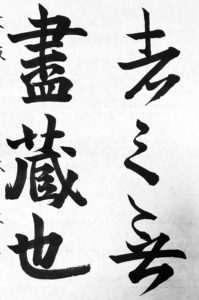 者之無
盡藏也